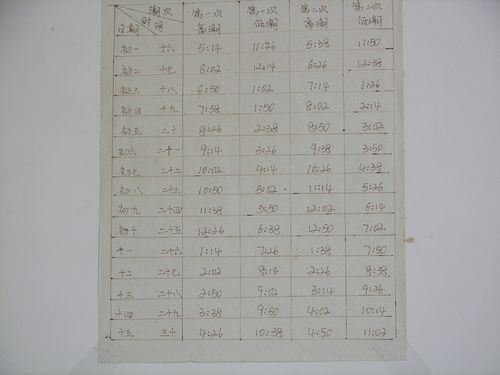 潮次 第一次 第一次 第二次 第二次
时间
日期 高潮 低潮 高潮 低潮
初一 十六 5:14 11:26 5:38 11:50
初二 十七 6:02 12:14 6:26 12:38
初三 十八 6:50 1:02 7:14 1:26
初四 十九 7:38 1:50 8:02 2:14
初五 二十 8:26 2:38 8:50 3:02
初六 二十一 9:14 3:26 9:38 3:50
初七 二十二 10:02 4:14 10:26 4:38
初八 二十三 10:50 5:02 11:14 5:26
初九 二十四 11:38 5:50 12:02 6:14
初十 二十五 12:26 6:38 12:50 7:02
十一 二十六 1:14 7:26 1:38 7:50
十二 二十七 2:02 8:14 2:26 8:38
十三 二十八 2:50 9:02 3:14 9:26
十四 二十九 3:38 9:50 4:02 10:14
十五 三十 4:26 10:38 4:50 11:02